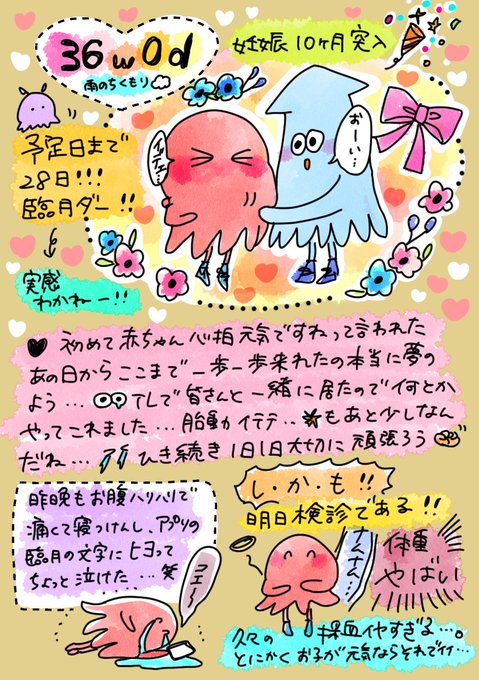 36w0d
雨のちくもり
妊娠10ヶ月突入
予定日まで
28日!!!
臨月ダー!!
実感
わかねー!!
イッテェ…
おーい…
初めて赤ちゃん心拍元気ですねって言われた
あの日からここまで一歩一歩来れたの本当に夢の
よう… TLで皆さんと一緒に居たので何とか
やってこれました… 胎動イテテ.. もあと少しなん
だね… ひき続き1日1日大切に頑張ろう
昨晩もお腹ハリハリで
痛くて寝っけんし、アプリの
臨月の文字にヒヨって
ちょっと泣けた…笑
コエ〜
し・か・も!!
明日検診である!!
体重
やばい
久々の 採血イヤすぎる…。
とにかくお子が元気ならそれで行…